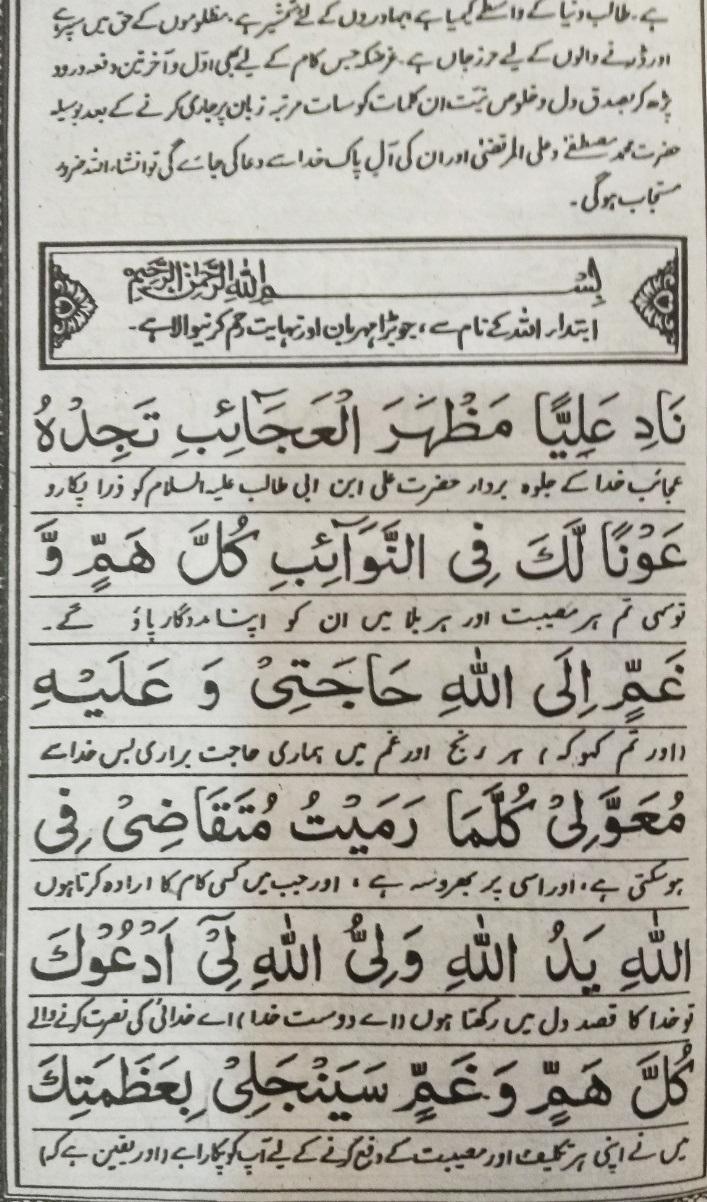 ہے۔ طالب دنیا کے واسطے کیمیا ہے بہادروں کے لئے شمشیر ہے۔ مظلوموں کے حق میں سپر ہے
اور ڈرنے والوں کے لیے حرز جاں ہے۔ غرضکہ جس کام کے لیے بھی اول و آخر تین دفعہ درود
پڑھ کر بصدق دل و خلوص نیت ان کلمات کو سات مرتبہ زبان پر جاری کرنے کے بعد بوسیلہ
حضرت محمد مصطفےٰ و علی المرتضیٰ اور ان کی آل پاک خدا سے دعا کی جائے گی تو انشاء اللہ ضرور
مستجاب ہوگی۔
بِسْمِ اللهِ الرَّحْمٰنِ الرَّحِيْمِ
ابتداء اللہ کے نام سے، جو بڑا مہربان اور نہایت رحم کرنیوالا ہے۔
نَادِ عَلِيًّا مَظْهَرَ الْعَجَآئِبِ تَجِدْهُ
عجائب خدا کے جلوہ بردار حضرت علی ابن ابی طالب علیہ السلام کو ذرا پکارو
عَوْنًا لَّكَ فِى النَّوَآئِبِ كُلَّ هَمٍّ وَّ
تو سہی تم ہر مصیبت اور ہر بلا میں ان کو اپنا مددگار پاؤ گے۔
غَمٍّ اِلَى اللهِ حَاجَتِىْ وَ عَلَيْهِ
(اور تم کہو کہ) ہر رنج اور غم میں ہماری حاجت براری بس خدا سے
مُعَوَّلِىْ كُلَّمَا رَمَيْتُ مُتَقَاضِىْ فِى
ہوسکتی ہے، اور اسی پر بھروسہ ہے، اور جب میں کسی کام کا ارادہ کرتا ہوں
اللهِ يَدُ اللهِ وَلِىُّ اللهِ لِىْٓ اَدْعُوْكَ
تو خدا کا قصد دل میں رکھتا ہوں (اے دوست خدا) اے خدائی کی نصرت کرنے والے
كُلَّ هَمٍّ وَ غَمٍّ سَيَنْجَلِىْ بِعَظَمَتِكَ
میں نے اپنی ہر تکلیف اور مصیبت کے دفع کرنے کے لیے آپ کو پکارا ہے (اور یقین ہے کہ)